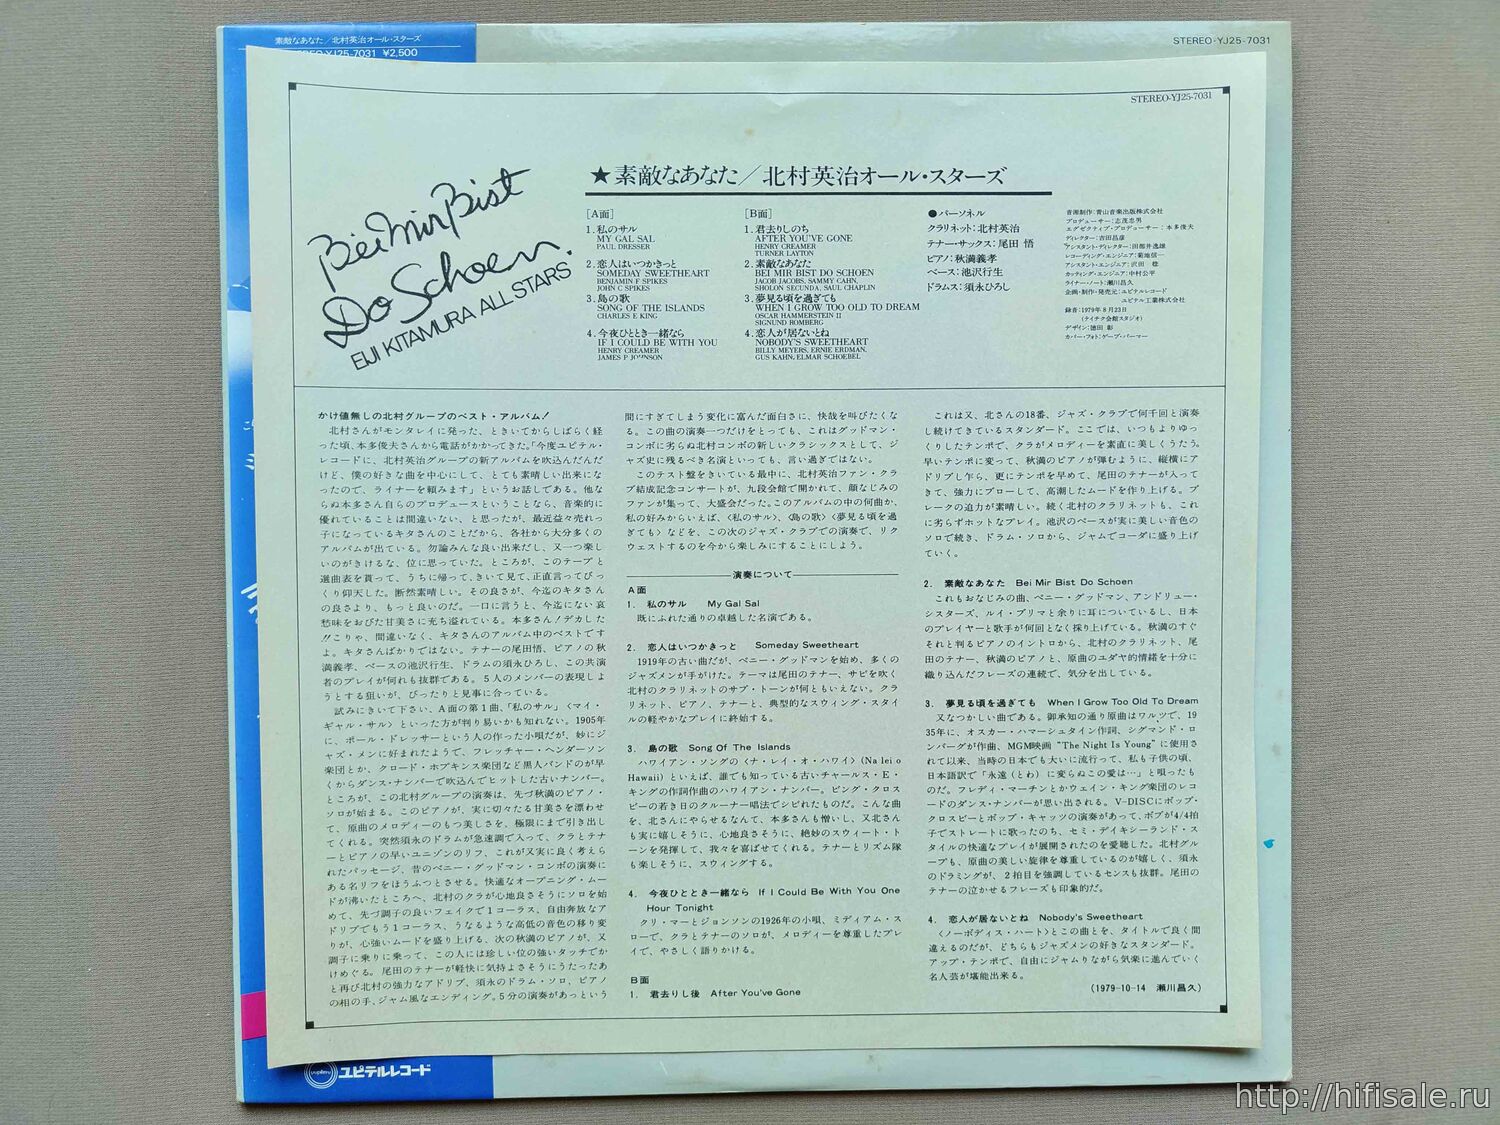 素敵なあなた/北村英治オール・スターズ
YJ25-7031 ¥2,500
STEREO-YJ25-7031
STEREO-YJ25-7031
Bei Mir Bist
Do Schoen.
EIJI KITAMURA ALL STARS
★素敵なあなた/北村英治オール・スターズ
[A面]
1.私のサル
MY GAL SAL
PAUL DRESSER
2.恋人はいつかきっと
SOMEDAY SWEETHEART
BENJAMIN F SPIKES
JOHN C SPIKES
3.島の歌
SONG OF THE ISLANDS
CHARLES E KING
4.今夜ひととき一緒なら
IF I COULD BE WITH YOU
HENRY CREAMER
JAMES P JOHNSON
[B面]
1.君去りしのち
AFTER YOU'VE GONE
HENRY CREAMER
TURNER LAYTON
2.素敵なあなた
BEI MIR BIST DO SCHOEN
JACOB JACOBS, SAMMY CAHN,
SHOLON SECUNDA, SAUL CHAPLIN
3.夢見る頃を過ぎても
WHEN I GROW TOO OLD TO DREAM
OSCAR HAMMERSTEIN II
SIGNUND ROMBERG
4.恋人が居ないとね
NOBODY'S SWEETHEART
BILLY MEYERS, ERNIE ERDMAN,
GUS KAHN, ELMAR SCHOEBEL
●パーソネル
クラリネット:北村英治
テナー・サックス:尾田 悟
ピアノ:秋満義孝
ベース:池沢行生
ドラムス:須永ひろし
音源制作:青山音楽出版株式会社
プロデューサー:志茂忠男
エグゼクティブ・プロデューサー:本多俊夫
ディレクター:吉田昌彦
アシスタント・ディレクター:田都井逸雄
レコーディング・エンジニア:菊地信一
アシスタント・エンジニア:沢田 稔
カッティング・エンジニア:中村公平
ライナー・ノート:瀬川昌久
企画・制作・発売元:ユピテルレコード
ユピテル工業株式会社
録音:1979年8月23日
(テイチク会館スタジオ)
デザイン:徳田 彰
カバー・フォト:ゲーブ・パーマー
かけ値無しの北村グループのベスト・アルバム!
北村さんがモンタレイに発った、ときいてからしばらく経
った頃、本多俊夫さんから電話がかかってきた。「今度ユピテル・
レコードに、北村英治グループの新アルバムを吹込んだんだ
けど、僕の好きな曲を中心にして、とても素晴しい出来にな
ったので、ライナーを頼みます」というお話しである。他な
らぬ本多さん自らのプロデュースということなら、音楽的に
優れていることは間違いない、と思ったが、最近益々売れっ
子になっているキタさんのことだから、各社から大分多くの
アルバムが出ている。勿論みんな良い出来だし、又一つ楽し
いのがきけるな、位に思っていた。ところが、このテープと
選曲表を貰って、うちに帰って、きいて見て、正直言ってびっ
くり仰天した。断然素晴しい。その良さが、今迄のキタさん
の良さより、もっと良いのだ。一口に言うと、今迄にない哀
愁味をおびた甘美さに充ち溢れている。本多さん!デカした
!!こりゃ、間違いなく、キタさんのアルバム中のベストです
よ。キタさんばかりではない。テナーの尾田悟、ピアノの秋
満義孝、ベースの池沢行生、ドラムの須永ひろし、この共演
者のプレイが何れも抜群である。5人のメンバーの表現しよ
うとする狙いが、ぴったりと見事に合っている。
試みにきいて下さい、A面の第1曲、「私のサル」〈マイ・
ギャル・サル〉といった方が判り易いかも知れない。1905年
に、ポール・ドレッサーという人の作った小唄だが、妙にジ
ャズ・メンに好まれたようで、フレッチャー・ヘンダーソン
楽団とか、クロード・ホプキンス楽団など黒人バンドのが早
くからダンス・ナンバーで吹込んでヒットした古いナンバー。
ところが、この北村グループの演奏は、先づ秋満のピアノ・
ソロが始まる。このピアノが、実に切々たる甘美さを漂わせ
て、原曲のメロディーのもつ美しさを、極限にまで引き出し
てくれる。突然須永のドラムが急速調で入って、クラとテナ
ーとピアノの早いユニゾンのリフ、これが又実に良く考えら
れたパッセージ、昔のベニー・グッドマン・コンボの演奏に
ある名リフをほうふつとさせる。快適なオープニング・ムー
ドが沸いたところへ、北村のクラが心地良さそうにソロを始
めて、先づ調子の良いフェイクで1コーラス、自由奔放なア
ドリブでもう1コーラス、うなるような高低の音色の移り変
りが、心強いムードを盛り上げる、次の秋満のピアノが、又
調子に乗りに乗って、この人には珍しい位の強いタッチでか
けめぐる。尾田のテナーが軽快に気持よさそうにうたったあ
と再び北村の強力なアドリブ、須永のドラム・ソロ、ピアノ
の相の手、ジャム風なエンディング。5分の演奏があっという
間にすぎてしまう変化に富んだ面白さに、快哉を叫びたくな
る。この曲の演奏一つだけをとっても、これはグッドマン・
コンボに劣らぬ北村コンボの新しいクラシックスとして、ジ
ャズ史に残るべき名演といっても、言い過ぎではない。
このテスト盤をきいている最中に、北村英治ファン・クラ
ブ結成記念コンサートが、九段会館で開かれて、顔なじみの
ファンが集って、大盛会だった。このアルバムの中の何曲か、
私の好みからいえば、〈私のサル〉、〈島の歌〉〈夢見る頃を過
ぎても〉などを、この次のジャズ・クラブでの演奏で、リク
ウェストするのを今から楽しみにすることにしよう。
演奏について
A面
1. 私のサル My Gal Sal
既にふれた通りの卓越した名演である。
2. 恋人はいつかきっと Someday Sweetheart
1919年の古い曲だが、ベニー・グッドマンを始め、多くの
ジャズメンが手がけた。テーマは尾田のテナー、サビを吹く
北村のクラリネットのサブ・トーンが何ともいえない。クラ
リネット、ピアノ、テナーと、典型的なスウィング・スタイ
ルの軽やかなプレイに終始する。
3. 島の歌 Song Of The Islands
ハワイアン・ソングの〈ナ・レイ・オ・ハワイ〉(Na lei o
Hawaii)といえば、誰でも知っている古いチャールス・E・
キングの作詞作曲のハワイアン・ナンバー。ビング・クロス
ビーの若き日のクルーナー唱法でシビれたものだ。こんな曲
を、北さんにやらせるなんて、本多さんも憎いし、又北さん
も実に嬉しそうに、心地良さそうに、絶妙のスウィート・ト
ーンを発揮して、我々を喜ばせてくれる。テナーとリズム隊
も楽しそうに、スウィングする。
4. 今夜ひととき一緒なら If I Could Be With You One
Hour Tonight
クリ・マーとジョンソンの1926年の小唄、ミディアム・ス
ローで、クラとテナーのソロが、メロディーを尊重したプレ
イで、やさしく語りかける。
B面
1. 君去りし後 After You've Gone
これは又、北さんの18番、ジャズ・クラブで何千回と演奏
し続けてきているスタンダード。ここでは、いつもよりゆっ
くりしたテンポで、クラがメロディーを素直に美しくうたう。
早いテンポに変って、秋満のピアノが弾むように、縦横にア
ドリブし乍ら、更にテンポを早めて、尾田のテナーが入って
きて、強力にブローして、高潮したムードを作り上げる。ブ
レークの迫力が素晴しい。続く北村のクラリネットも、これ
に劣らずホットなプレイ。池沢のベースが実に美しい音色の
ソロで続き、ドラム・ソロから、ジャムでコーダに盛り上げ
ていく。
2. 素敵なあなた Bei Mir Bist Do Schoen
これもおなじみの曲、ベニー・グッドマン、アンドリュー・
シスターズ、ルイ・プリマと余りに耳についているし、日本
のプレイヤーと歌手が何回となく採り上げている。秋満のすぐ
それと判るピアノのイントロから、北村のクラリネット、尾
田のテナー、秋満のピアノと、原曲のユダヤ的情緒を十分に
織り込んだフレーズの連続で、気分を出している。
3. 夢見る頃を過ぎても When I Grow Too Old To Dream
又なつかしい曲である。御承知の通り原曲はワルツで、19
35年に、オスカー・ハマーシュタイン作詞、シグマンド・ロ
ンバーグが作曲、MGM映画 "The Night Is Young" に使用さ
れて以来、当時の日本でも大いに流行って、私も子供の頃、
日本語訳で「永遠(とわ)に変らぬこの愛は…」と唄ったも
のだ。フレディ・マーチンとかウェイン・キング楽団のレコ
ードのダンス・ナンバーが思い出される。V-DISCにボッブ・
クロスビーとボッブ・キャッツの演奏があって、ボブが4/4拍
子でストレートに歌ったのち、セミ・デイキシーランド・ス
タイルの快適なプレイが展開されたのを愛聴した。北村グル
ープも、原曲の美しい旋律を尊重しているのが嬉しく、須永
のドラミングが、2拍目を強調しているセンスも抜群。尾田の
テナーの泣かせるフレーズも印象的だ。
4. 恋人が居ないとね Nobody's Sweetheart
〈ノーボディス・ハート〉とこの曲とを、タイトルで良く間
違えるのだが、どちらもジャズメンの好きなスタンダード。
アップ・テンポで、自由にジャムりながら気楽に進んでいく
名人芸が堪能出来る。
(1979-10-14 瀬川昌久)
ユピテルレコード
http://hifisale.ru